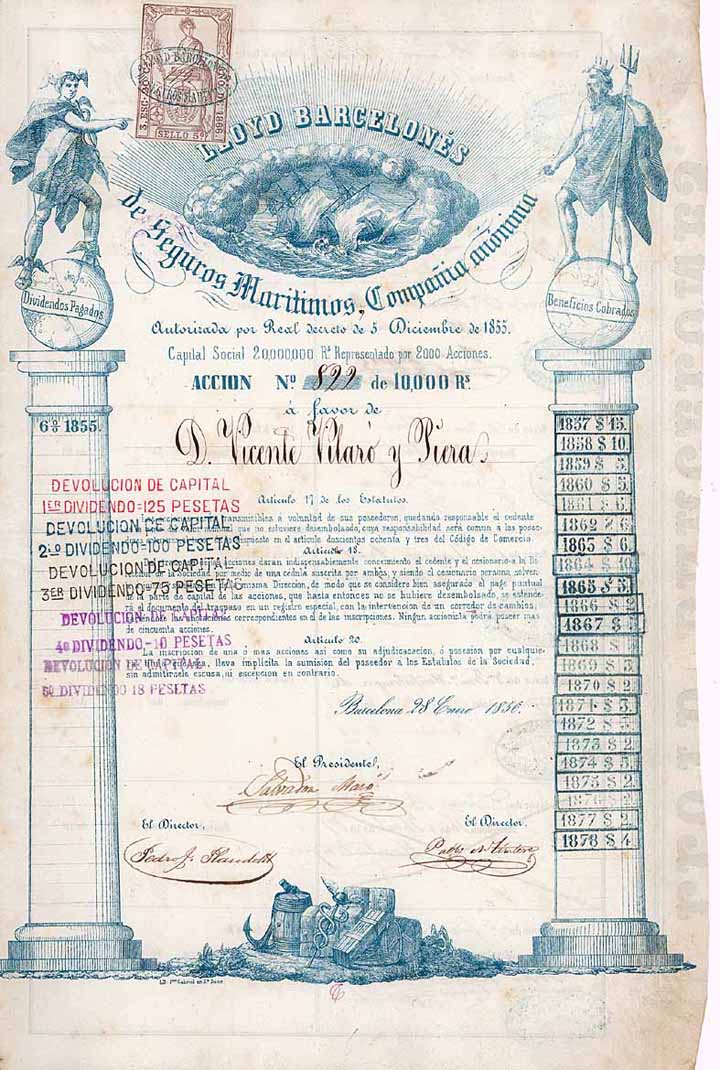 SELLO 59
LLOYD BARCELONÉS
de Seguros Marítimos, Compañia anónima
Dividendos Pagados
Beneficios Cobrados
Autorizada por Real decreto de 5 Diciembre de 1855.
Capital Social 20,000,000 Rs Representado por 2000 Acciones.
ACCION Nº 822 de 10,000 Rs
á favor de
D. Vicente Vilaró y Piera
1855.
DEVOLUCION DE CAPITAL
1ER DIVIDENDO=125 PESETAS
DEVOLUCION DE CAPITAL
2º DIVIDENDO=100 PESETAS
DEVOLUCION DE CAPITAL
3ER DIVIDENDO=75 PESETAS
DEVOLUCION DE CAPITAL
4º DIVIDENDO-10 PESETAS
DEVOLUCION DE CAPITAL
5º DIVIDENDO 18 PESETAS
Artículo 17 de los Estatutos.
transmisibles á voluntad de sus poseedores, quedando responsable el cedente
que no estuviere desembolado, cuya responsabilidad será comun a las
en el artículo doscientos ochenta y tres del Código de Comercio.
Artículo 18.
acciones darán indispensablemente conocimiento el cedente y el cesionario a la Di
reccion de la sociedad por medio de una cédula suscrita por ambos, y siendo el cesionario persona solven
misma Direccion, de modo que se considere bien asegurado el pago puntual
de capital de las acciones, que hasta entonces no se hubiere desembolsado, se estende
rá el documento del traspaso en un registro especial, con la intervencion de un corredor de cambios,
las anotaciones correspondientes en el de las inscripciones. Ningun accionista podrá poseer mas
de cincuenta acciones.
Artículo 20.
La inscripcion de una ó mas acciones así como su adjudicacion, ó posesion por cualquie
ra que la obtenga, lleva implícita la sumision del poseedor a los Estatutos de la Sociedad,
sin admitírsele escusa, ni escepcion en contrario.
Barcelona 28 Enero 1856.
El Presidente,
El Director,
El Director,
1857 $ 15.
1858 $ 10.
1859 $ 5.
1860 $ 5.
1861 $ 6.
1862 $ 6.
1865 $ 6.
1864 $ 10.
1865 $ 5.
1866 $ 2
1867 $ 5
1868 $
1869 $ 3
1870 $ 2
1871 $ 3.
1872 $
1873 $ 2.
1874 $ 5
1875 $ 2.
1876 $
1877 $ 2
1878 $ 4